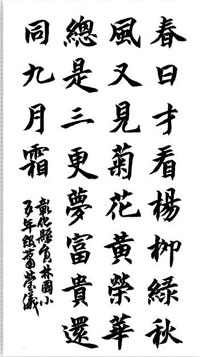 春日才看楊柳綠秋
風又見菊花黃榮華
總是三更夢富貴還
同九月霜
彰化縣員林國小
五年級黃瑩儀